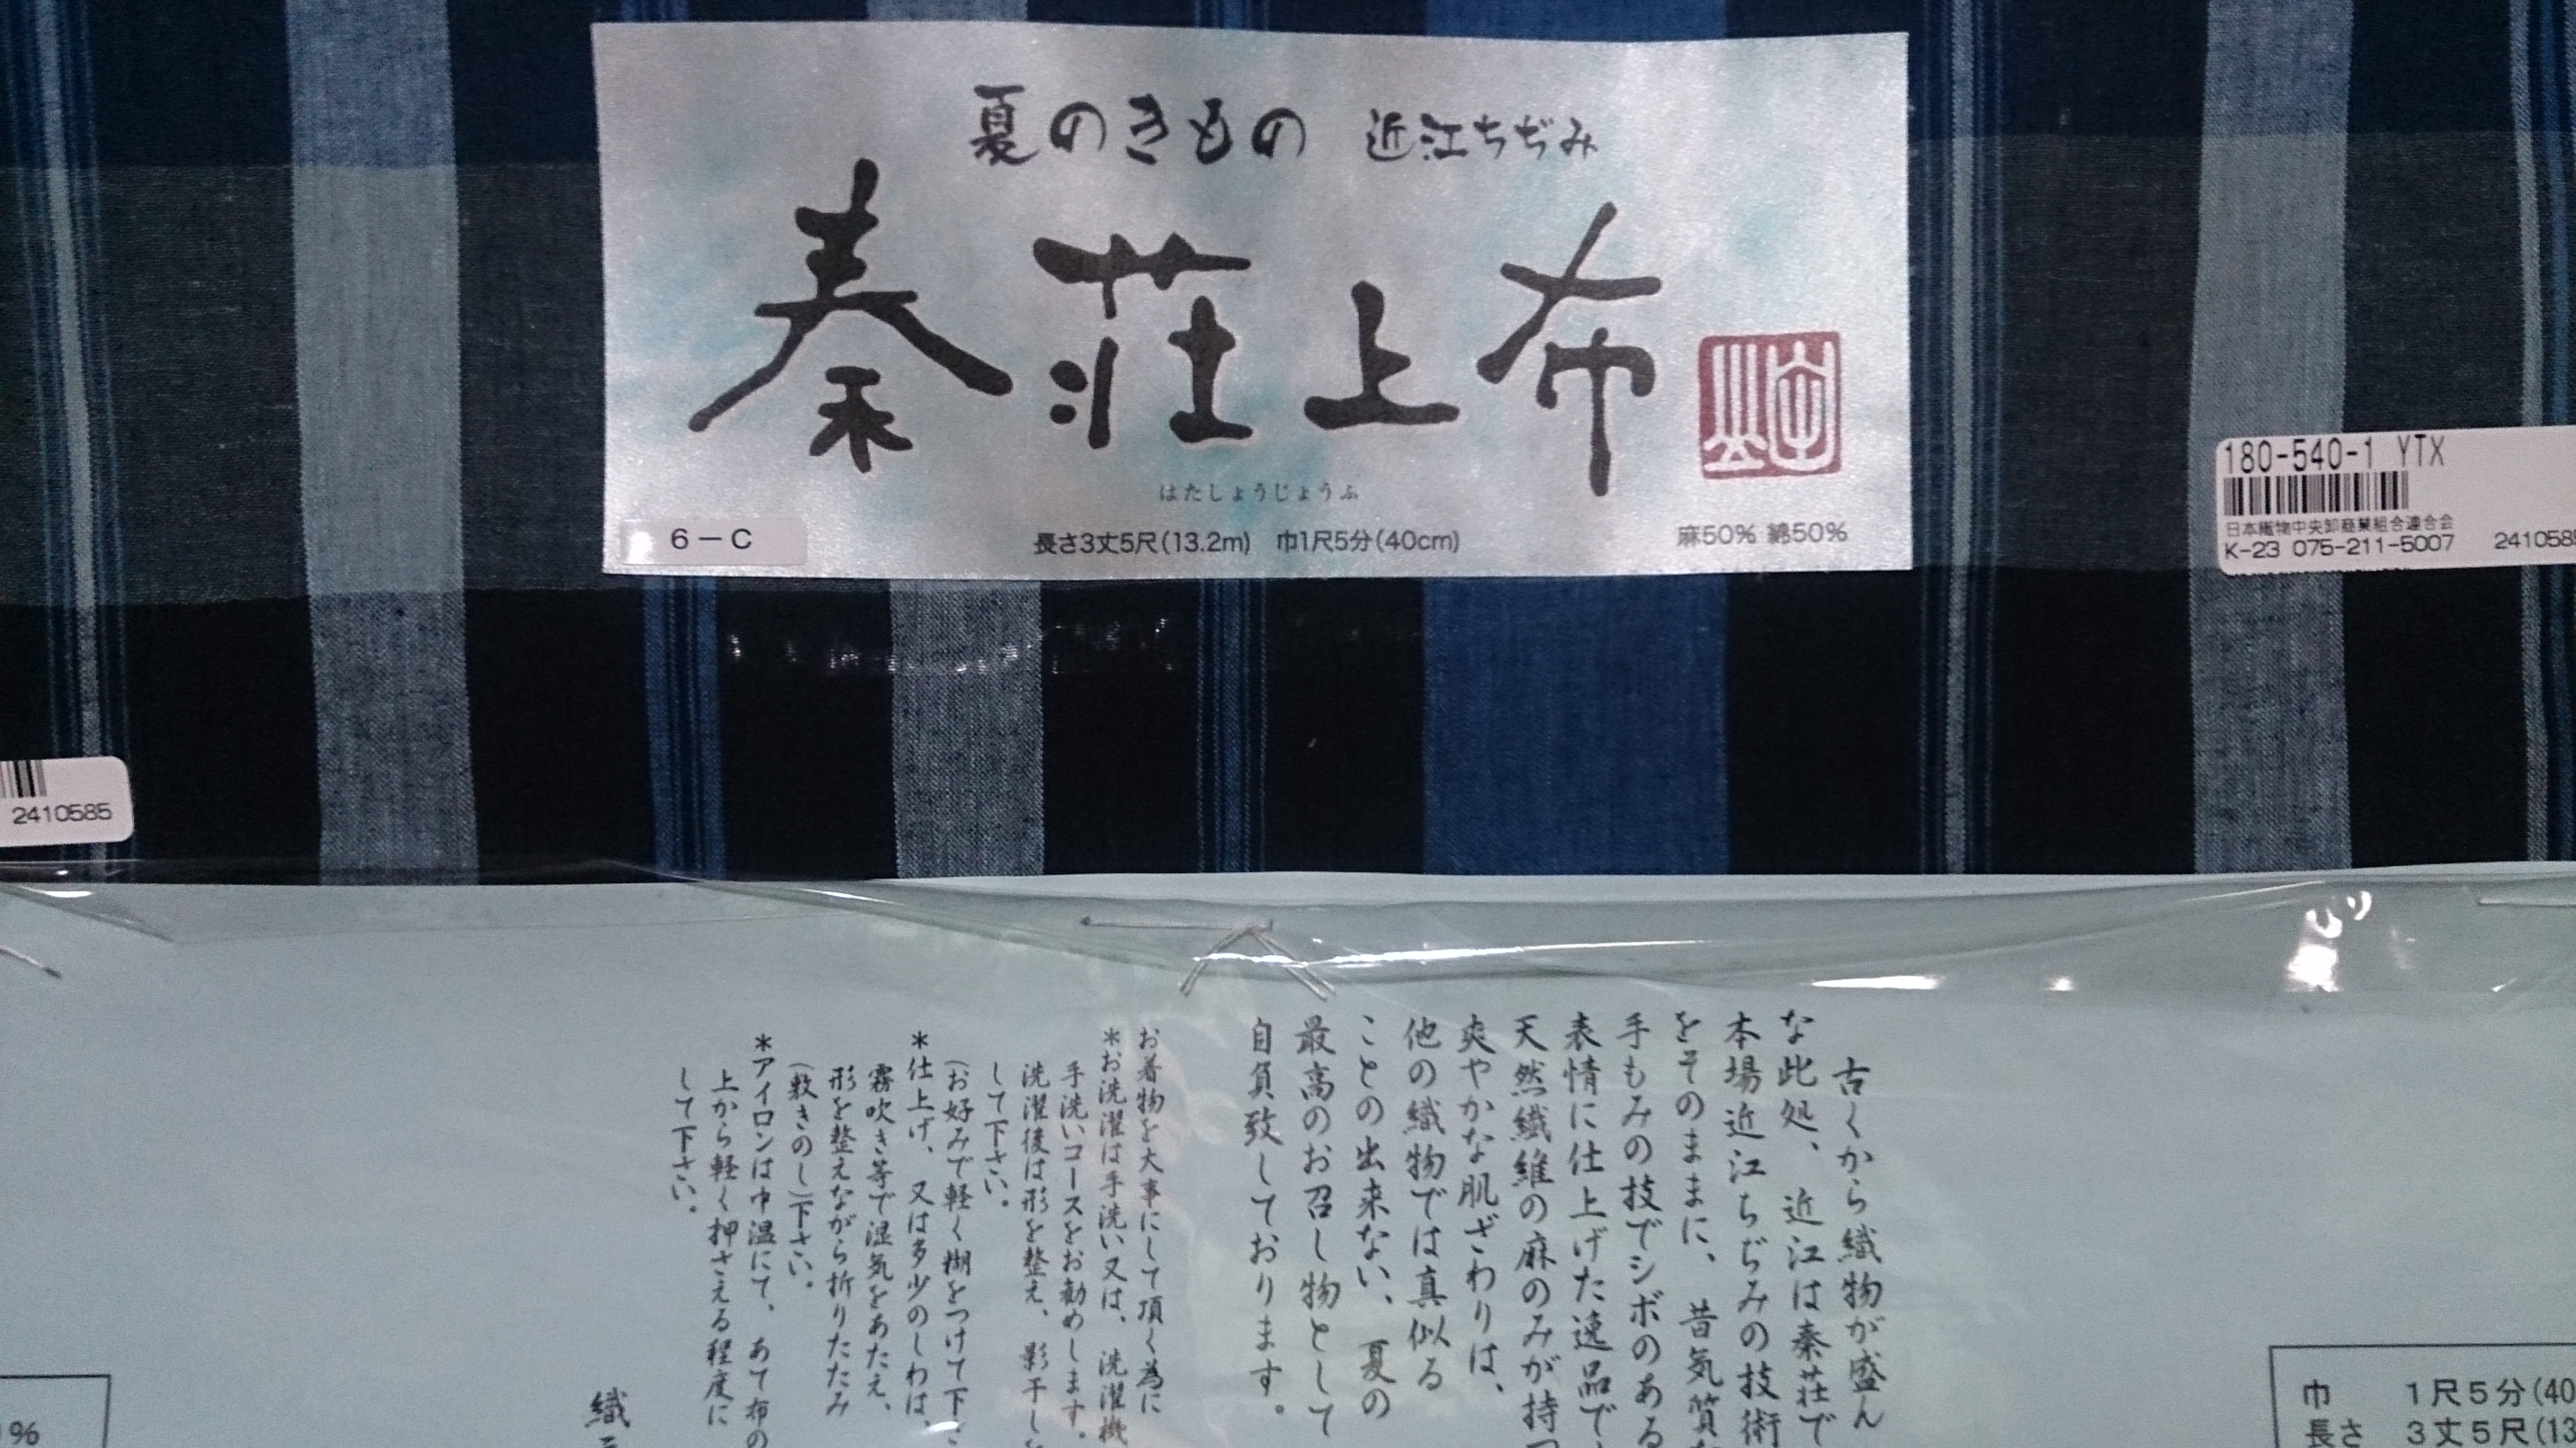 夏のきもの 近江ちぢみ
秦荘上布
はたしょうじょうふ
6-C
長さ3丈5尺(13.2m) 巾1尺5分(40cm)
麻50% 綿50%
180-540-1 YTX
日本織物中央卸商業組合連合会
K-23 075-211-5007 241058
2410585
古くから織物が盛ん
な此処、近江は秦荘で
本場近江ちぢみの技術
をそのままに、昔気質
手もみの技でシボのある
表情に仕上げた逸品で
天然繊維の麻のみが持
爽やかな肌ざわりは、
他の織物では真似る
ことの出来ない、夏の
最高のお召し物として
自負致しております。
お着物を大事にして頂く為に
*お洗濯は手洗い又は、洗濯機
手洗いコースをお勧めします。
洗濯後は形を整え、影干し
して下さい。
(お好みで軽く糊をつけて下
*仕上げ、又は多少のしわは、
霧吹き等で湿気をあたえ、
形を整えながら折りたたみ
(敷きのし)下さい。
*アイロンは中温にて、あて布の
上から軽く押さえる程度に
して下さい。
織
%
巾 1尺5分(40
長さ 3丈5尺(13